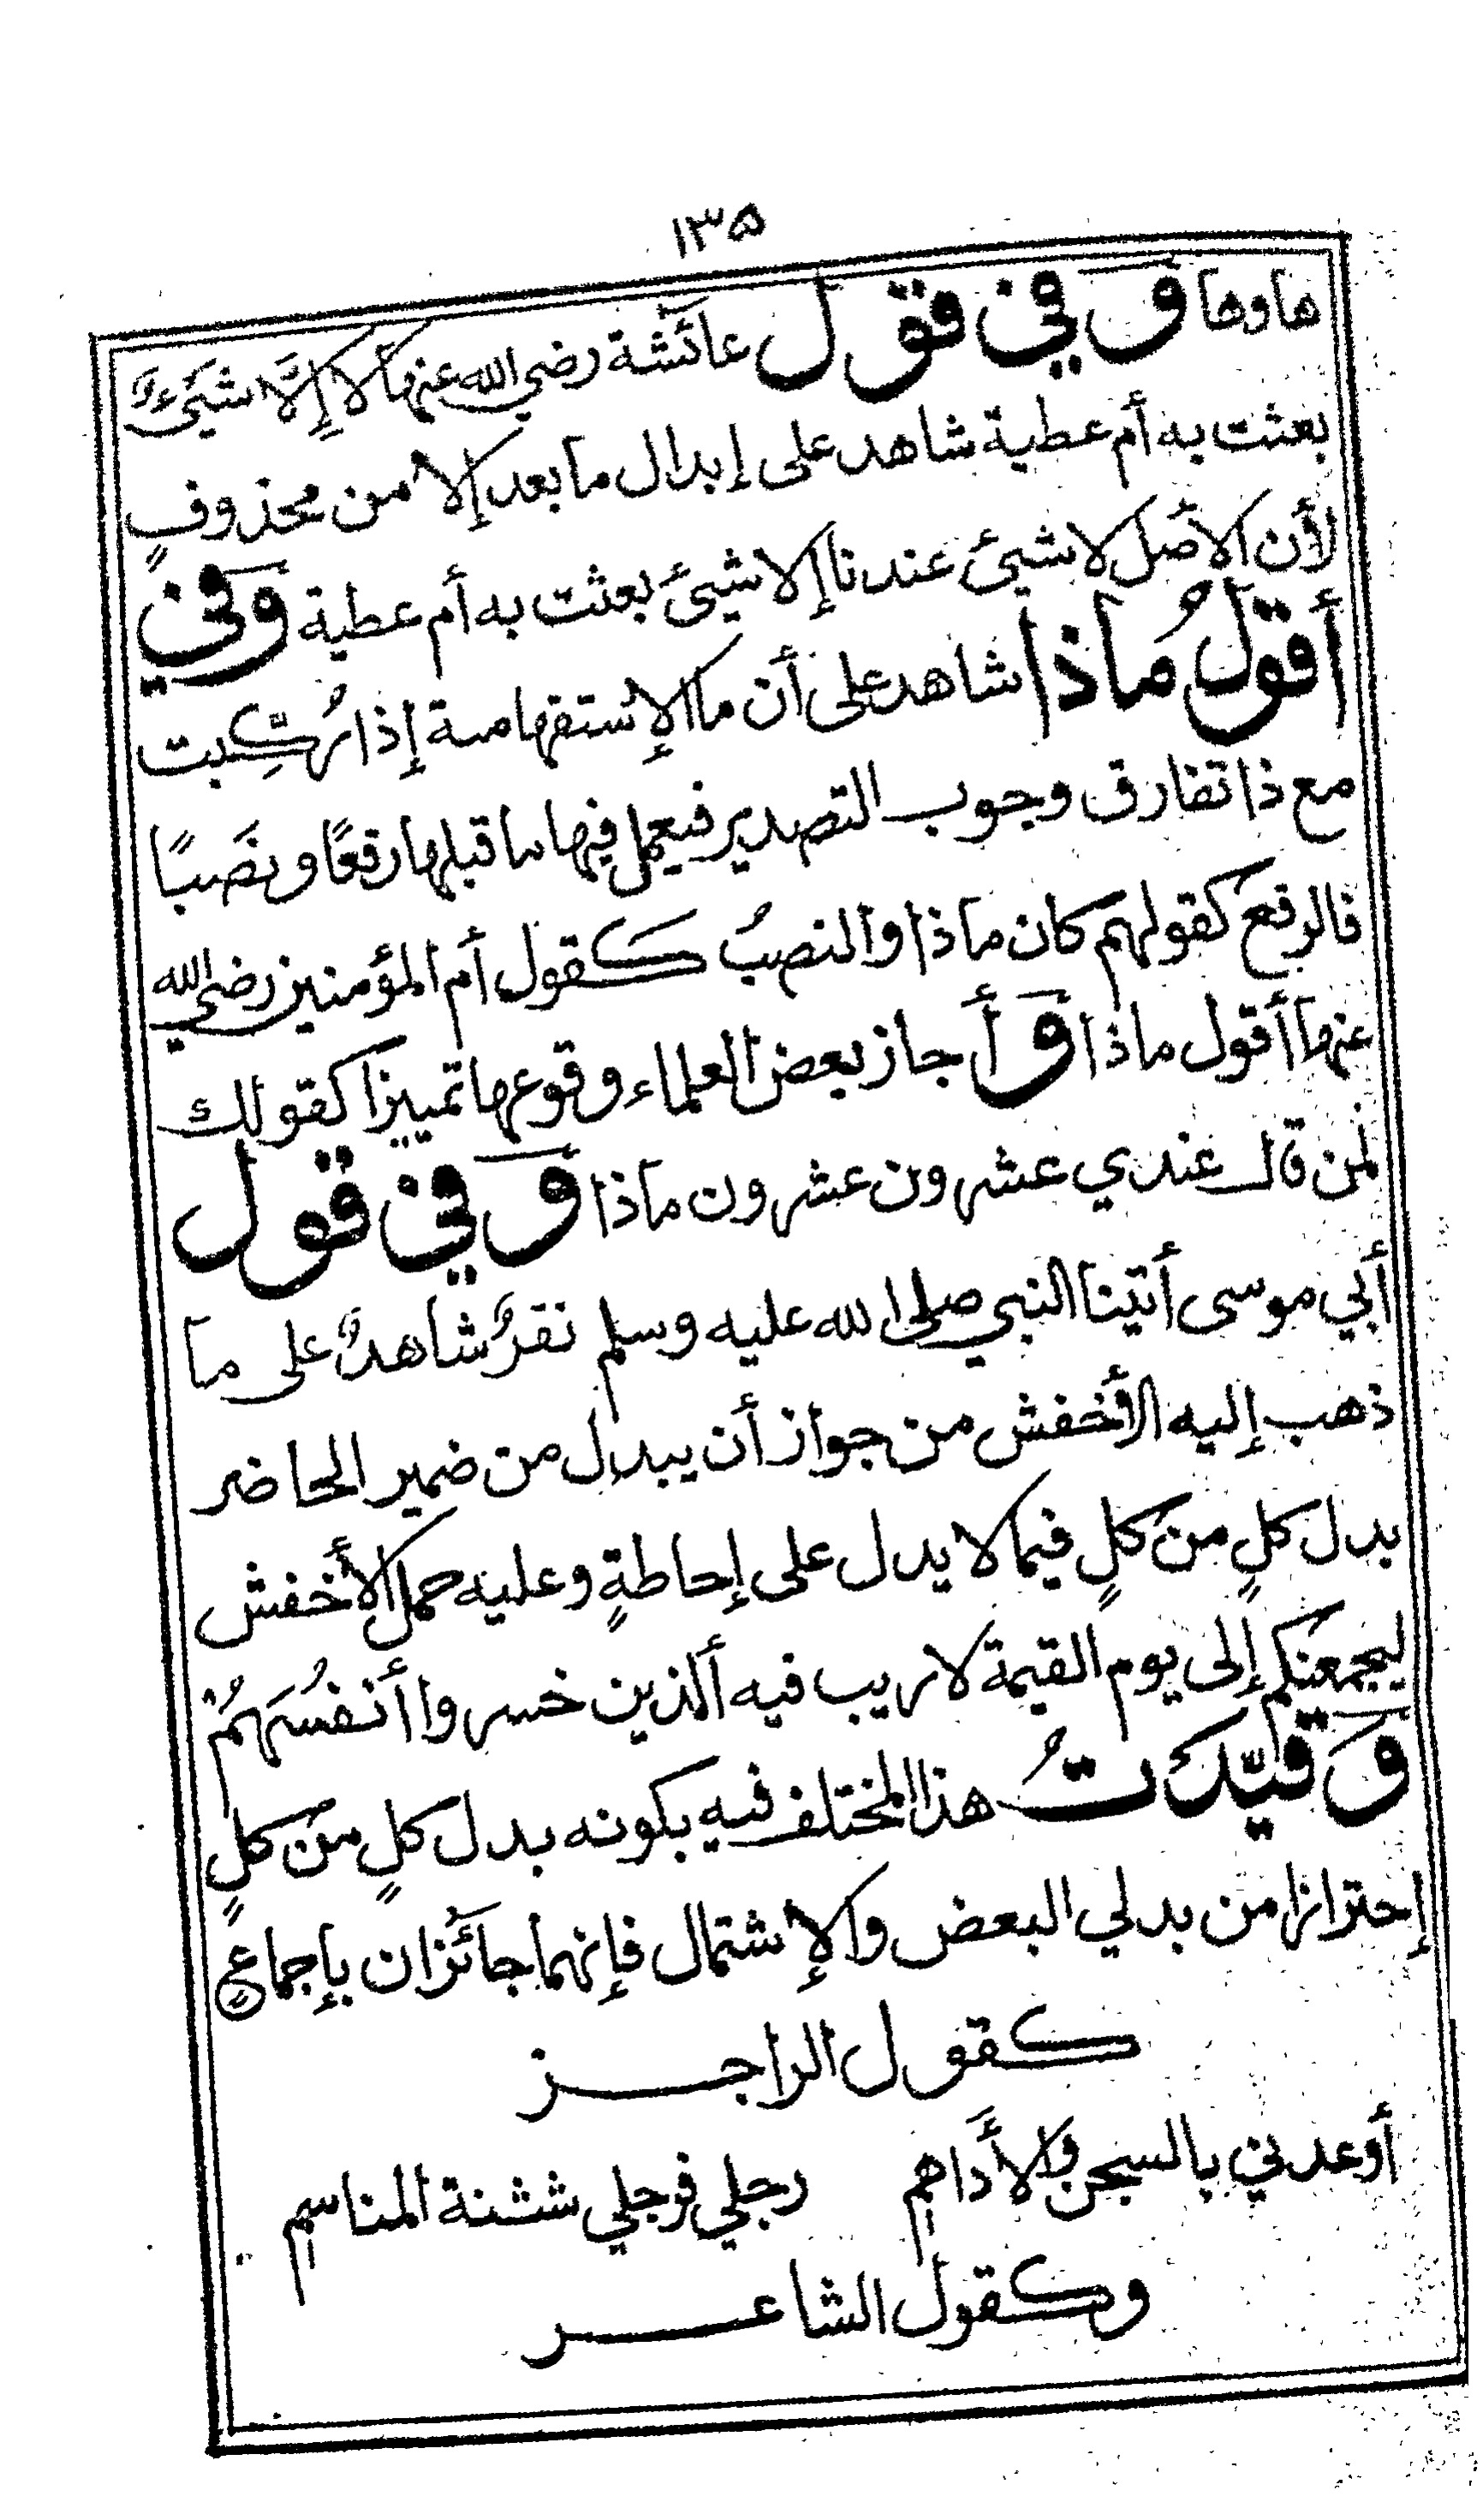 ١٣٥
ها وها وفي قول عائشة رضي الله عنها لا إلَّا شيئ
بعثت به أم عطية شاهد على إبدال ما بعد إلا من محذوفٍ
لأن الأصل لا شيئ عندنا إلا شيئ بعثت به أم عطية وفي
أقول ماذا شاهد على أن ما الإستفهامية إذا رُكِّبت
مع ذا تفارق وجوب التصدير فيعمل فيها ما قبلها رفعًا ونصَبًا
فالرفع كقولهم كان ماذا والنصبُ كقول أم المؤمنين رضي الله
عنها أقول ماذا وأجاز بعض العلماء وقوعها تمييزا كقولك
لمن قال عندي عشرون عشرون ماذا وَفي قول
أبي موسى أتينا النبي صلى الله عليه وسلم نفرٌ شاهدٌ على ما
ذهب إليه الأخفش من جواز أن يبدل من ضمير الحاضر
بدل كلٍ من كلٍ فيما لا يدل على إحاطةٍ وعليه حمل الأخفش
ليجمعنكم إلى يوم القيمة لا ريب فيه ألذين خسروا أنفسُهمُْ
وَقيّدتُ هذا المختلف فيه بكونه بدل كلٍ من كلٍ
إحترازا من بدلي البعض والإشتمال فإنهما جائزان بإجماعٍ
كقول الراجز
أوعدني بالسجن والأداهم رجلي فرجلي شثنة المناسم
وكقول الشاعر